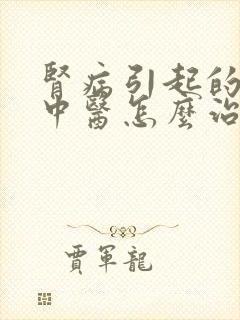 腎病引起的
中醫怎麼治
賈軍龍